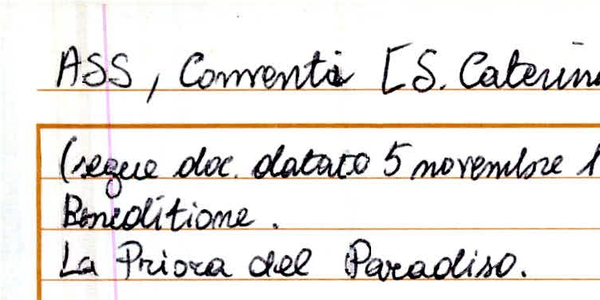 ASS, Conventi [S. Caterina
(segue doc. datato 5 novembre 1
Beneditione.
La Priora del Paradiso.